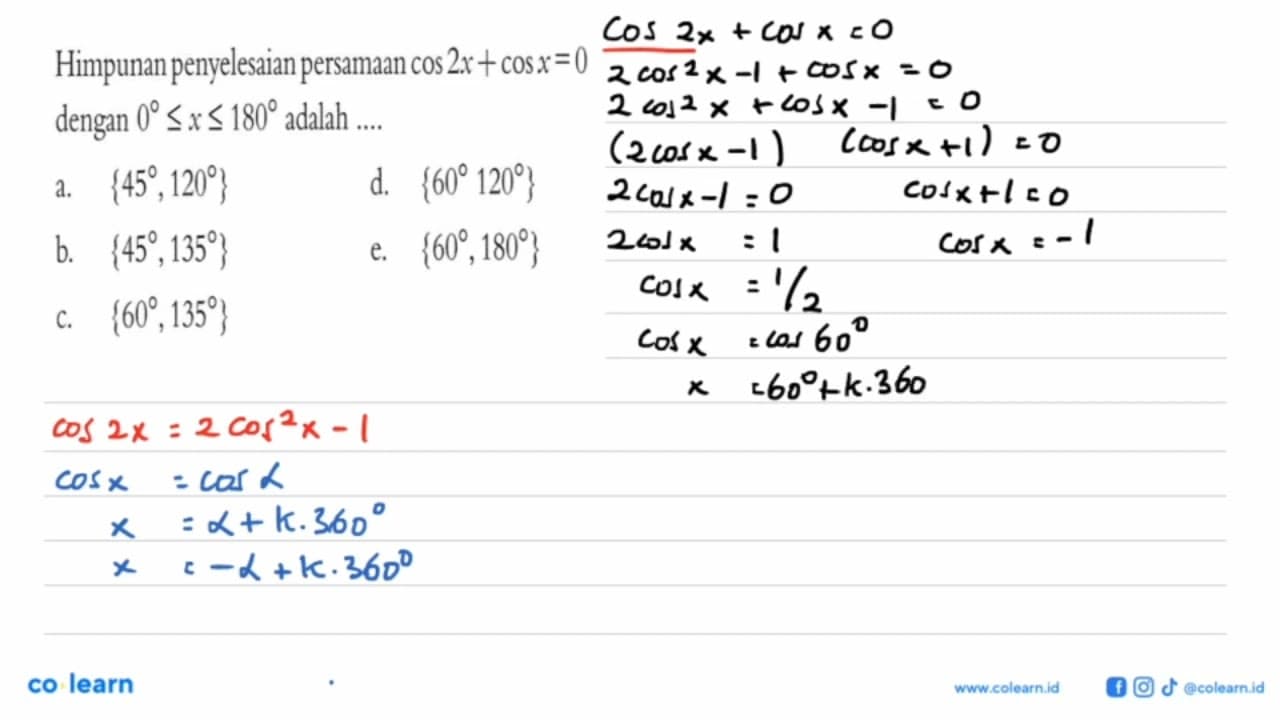 Himpunan penyelesaian persamaan cos 2x + cos x = 0
dengan 0° ≤ x ≤ 180° adalah ....
a. {45°, 120°}
d. {60° 120°}
b. {45°, 135°}
e. {60°, 180°}
c. {60°, 135°}
cos 2x + cos x = 0
2 cos² x - 1 + cos x = 0
2 cos² x + cos x - 1 = 0
(2 cos x - 1) (cos x + 1) = 0
2 cos x - 1 = 0 cos x + 1 = 0
2 cos x = 1 cos x = -1
cos x = 1/2
cos x = cos 60°
x = 60° + k. 360
cos 2x = 2 cos² x - 1
cos x = cos α
x = α + k. 360°
x = -α + k. 360°
co learn
www.colearn.id @colearn.id